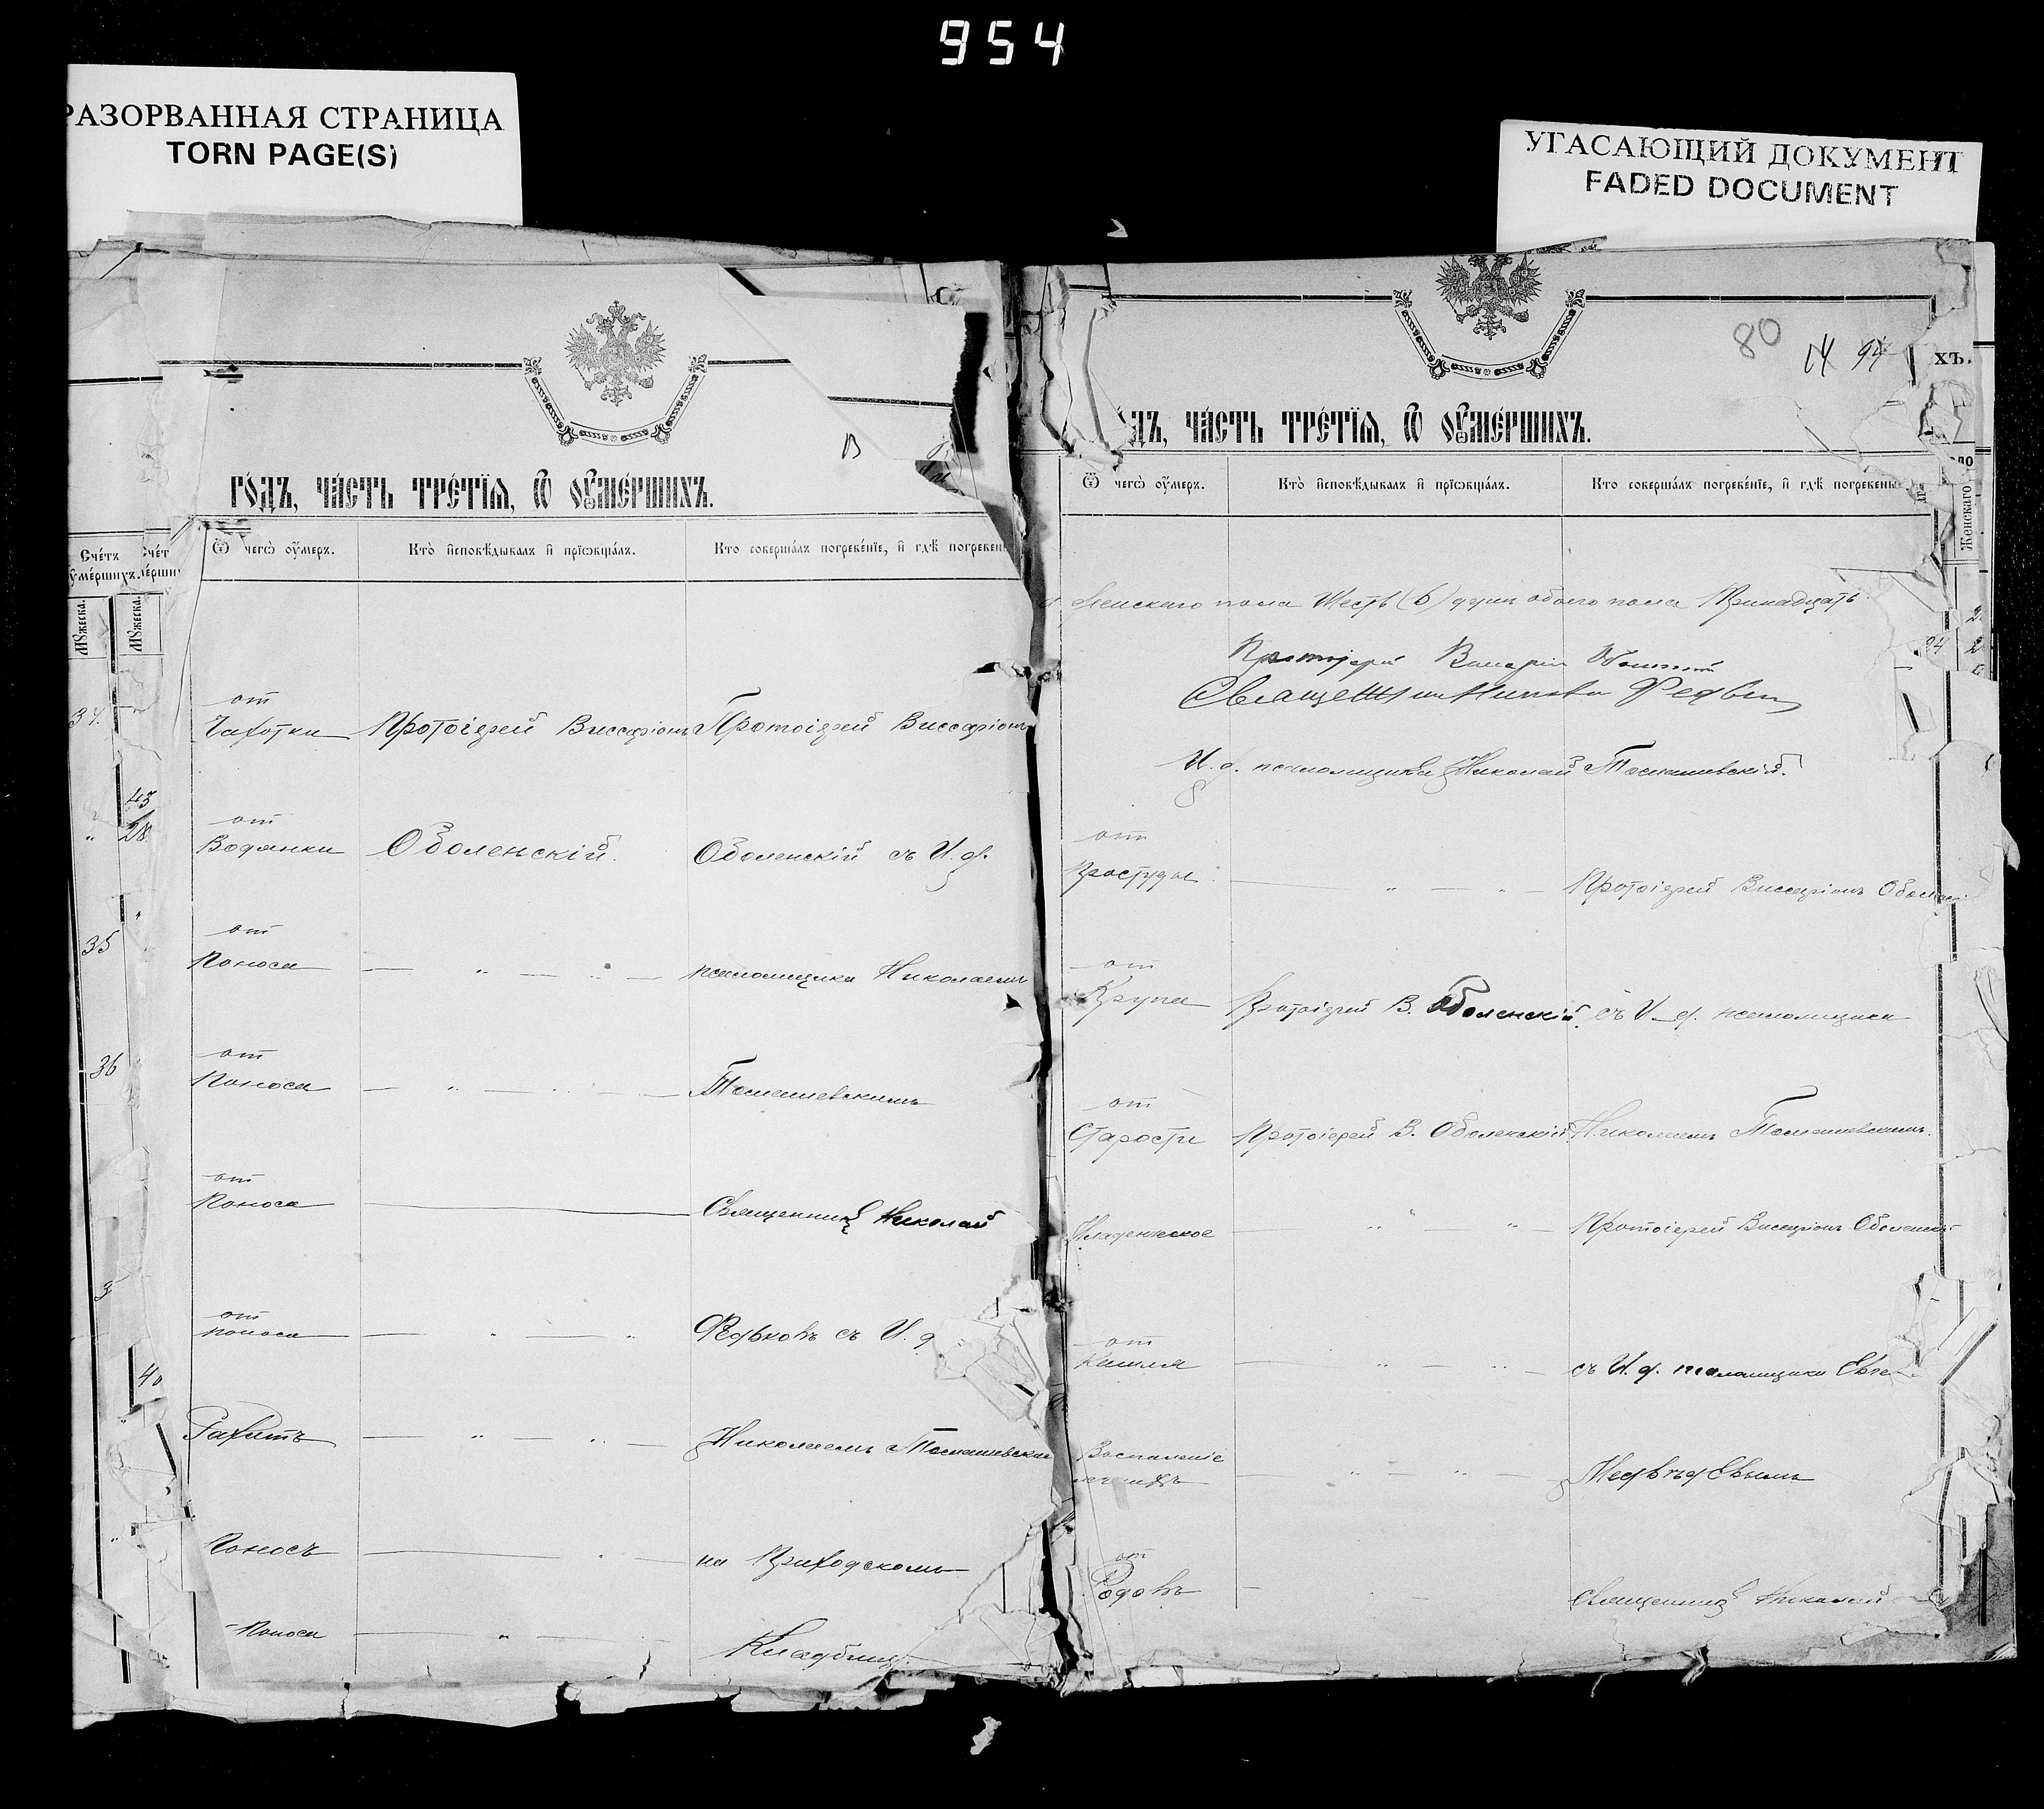 954
РАЗОРВАННАЯ СТРАНИЦА
TORN PAGE(S)
УГАСАЮЩИЙ ДОКУМЕНТ
FADED DOCUMENT
го́дъ, ча́сть тре́тїѧ, ѡ҆ ᲂу҆ме́ршихъ.
Сче́тъ
ᲂу҆ме́ршихъ.
Мꙋжеска.
Мꙋжеска.
Ѿ чегѡ̀ ᲂу҆́меръ.
Кто̀ и҆сповѣ́дывалъ и҆ прїѡбща́лъ.
Кто соверша́лъ погребе́нїе, и҆ гдѣ̀ погребены
34.
от
Чахотки
Протоіерей Виссаріонъ
Протоіерей Виссаріонъ
43
28
от
Водянки
Оболенскій.
Оболенскій съ И. д.
35
от
Поноса
— " —
псаломщика Николаемъ
36
от
Поноса
— " —
Томашевскимъ
от
Поноса
Священникъ Николай
от
поноса
— " —
Редьковъ съ И. д
40
Рахитъ
— " — " —
Николаемъ Томашевским
Поносъ
на Приходскомъ
Поноса
— " —
Кладбищѣ.
80
14 94
хъ.
дъ, ча́сть тре́тїѧ, ѡ҆ ᲂу҆ме́ршихъ.
Ѿ чегѡ̀ ᲂу҆́меръ.
Кто̀ и҆сповѣ́дывалъ и҆ прїѡбща́лъ.
Кто соверша́лъ погребе́нїе, и҆ гдѣ̀ погребены
Женскаго
женскаго пола Шесть (6) душъ обоего пола Тринадцать
Протоіерей Оболенскій
Священникъ Николай Редьковъ
И. д. псаломщика Николай Томашевскій.
от
Простуды
— " — " —
Протоіерей Виссаріонъ Оболенскі
от
Крупа
Протоіерей В. Оболенскій.
съ И. д. псаломщика
от
Старости
Протоіерей В. Оболенскій
Николаемъ Томашевскимъ.
Младенческое
— " — " —
Протоіерей Виссаріонъ Оболенскі
от
Кашля
— " — " —
съ И. д. псаломщика
Воспаленіе
— " — " —
Медвѣдевымъ
от
Родовъ
Священникъ Николай